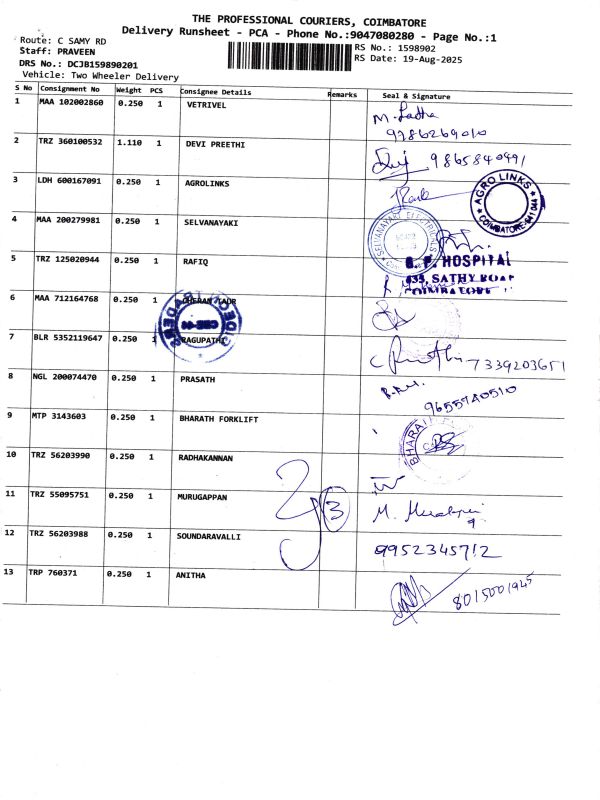 THE PROFESSIONAL COURIERS, COIMBATORE
Delivery Runsheet - PCA - Phone No.:9047080280 - Page No.:1
Route: C SAMY RD
RS No.: 1598902
Staff: PRAVEEN
RS Date: 19-Aug-2025
DRS No.: DCJB159890201
Vehicle: Two Wheeler Delivery
S No Consignment No Weight PCS Consignee Details Remarks Seal & Signature
1 MAA 102002860 0.250 1 VETRIVEL M. Latha
9786269010
2 TRZ 360100532 1.110 1 DEVI PREETHI 9865840491
3 LDH 600167091 0.250 1 AGROLINKS
AGRO LINKS
COIMBATORE-641 044
4 MAA 200279981 0.250 1 SELVANAYAKI
SELVANAYAKI ELECTRICALS
5 TRZ 125020944 0.250 1 RAFIQ
HOSPITAL
SATHY ROAD
COIMBATORE
6 MAA 712164768 0.250 1
7 BLR 5352119647 0.250 1 RAGUPATHI 7339203651
8 NGL 200074470 0.250 1 PRASATH
9655740510
9 MTP 3143603 0.250 1 BHARATH FORKLIFT
BHARATH
10 TRZ 56203990 0.250 1 RADHAKANNAN
11 TRZ 55095751 0.250 1 MURUGAPPAN 13 M.
12 TRZ 56203988 0.250 1 SOUNDARAVALLI 9952345712
13 TRP 760371 0.250 1 ANITHA 8015001945